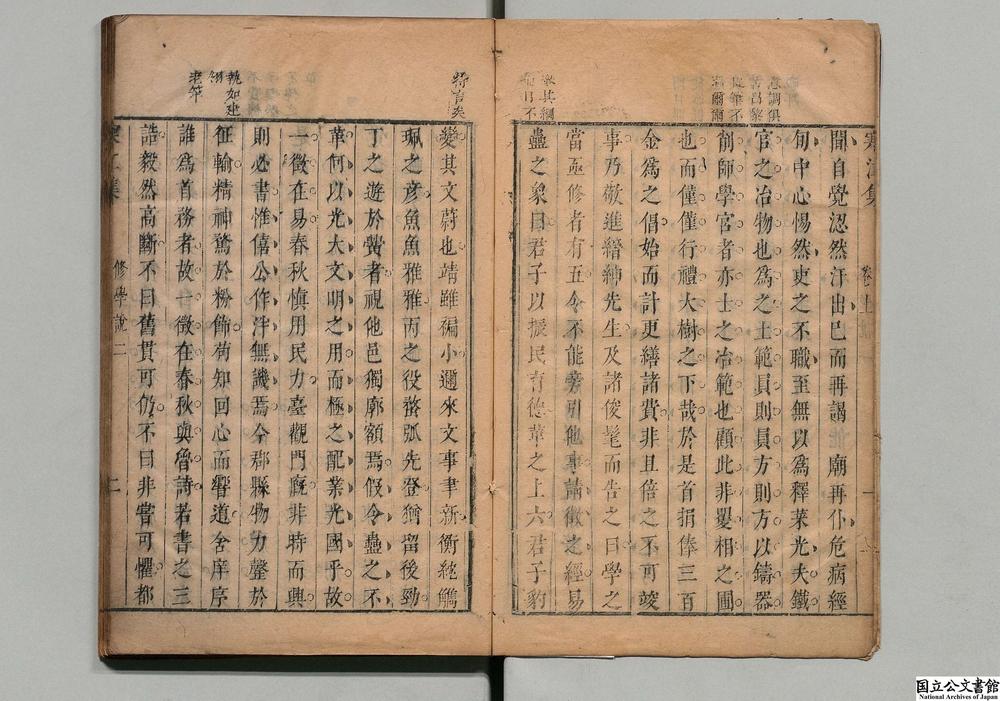 聞自覺涊然汗出已而再謁他廟再仆危病經
旬中心惕然吏之不職至無以爲釋菜光夫鐵
官之冶物也爲之土範員則員方則方以鑄器
削師學官者亦士之冶範也顧此非矍相之圃
也而僅僅行禮大樹之下哉於是首捐俸三百
金爲之倡始而計更繕諸費非且倍之不可竣
事乃敬進縉紳先生及諸俊髦而告之曰學之
當亟修者有五今不能旁引他事請徵之經易
蠱之象曰君子以振民育德革之上六君子豹
變其文蔚也靖雖褊小邇來文事聿新衡紞觿
珮之彥魚魚雅雅丙之役螯弧先登猶留後勁
丁之遊於黌者視他邑獨廓額焉假令蠱之不
革何以光大文明之用而極之配業光國乎故
一徵在易春秋慎用民力臺觀門廐非時而興
則必書惟僖公作泮無譏焉今郡縣物力罄於
征輸精神騖於粉飾荀知回心而嚮道舍庠序
誰爲首務者故一徵在春秋與魯詩若書之三
誥毅然高斷不曰舊貫可仍不曰非嘗可懼都
修學說二
二
執如建
老筆